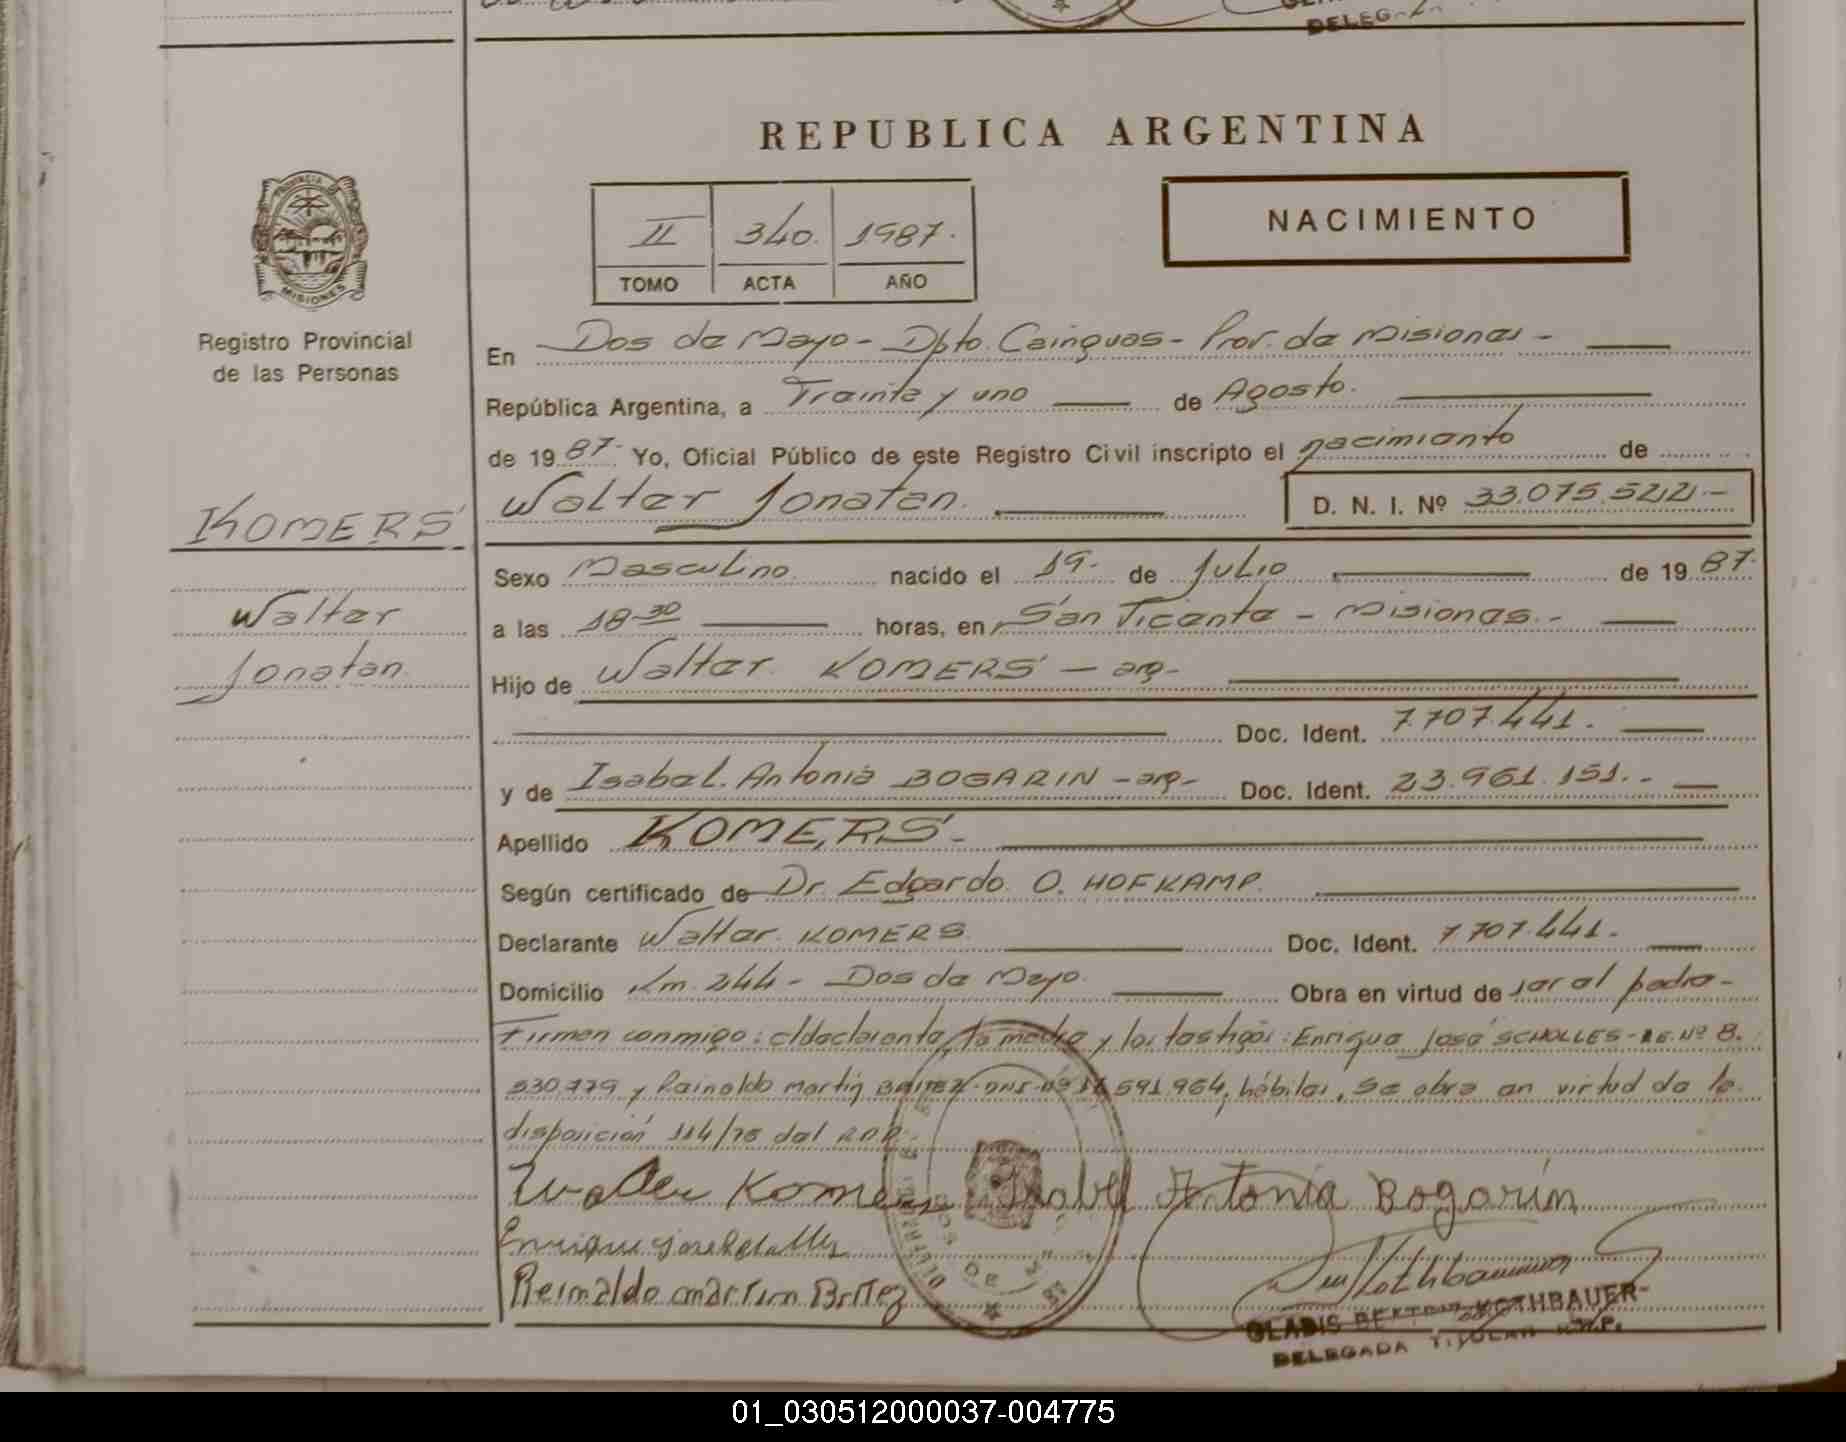 REPUBLICA ARGENTINA
PROVINCIA
MISIONES
Registro Provincial
de las Personas
II 340. 1987.
TOMO ACTA AÑO
NACIMIENTO
En Dos de Mayo - Dpto. Cainguas - Prov. de Misiones -
República Argentina, a Treinta y uno de Agosto.
de 19 87- Yo, Oficial Público de este Registro Civil inscripto el nacimiento de
Walter Jonatan. D. N. I. Nº 33.075.522.-
KOMERS
Walter
Jonatan.
Sexo Masculino nacido el 19. de Julio de 19 87.
a las 18-30 horas, en San Vicente - Misiones. -
Hijo de Walter KOMERS - arg-
Doc. Ident. 7.707.441.
y de Isabel Antonia BOGARIN - arg- Doc. Ident. 23.961.151. -
Apellido KOMERS -
Según certificado de Dr. Edgardo O. HOFKAMP.
Declarante Walter KOMERS Doc. Ident. 7.707.441.
Domicilio Km. 244 - Dos de Mayo. Obra en virtud de ser el padre -
Firman conmigo: el declarante, la madre y los testigos: Enrique José SCHOLLES - Nº 8.
530.779 y Reinaldo Martin BRITEZ 591.964, hábiles, Se obra en virtud de la
disposición 114/75 del RPP.
Walter Komers Isabel Antonia Bogarín
Enrique José
Reinaldo martin Britez
GLADIS BEATRIZ ROTHBAUER
DELEGADA TITULAR R.P.P.
01_030512000037-004775